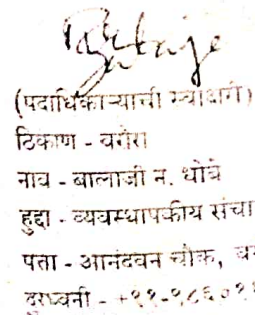 (पदाधिकाऱ्याची स्वाक्षरी)
ठिकाण - वरोरा
नाव - बालाजी न. धोबे
हुद्दा - व्यवस्थापकीय संचा
पता - आनंदवन चौक,
दूरध्वनी - +९१-९८६०११